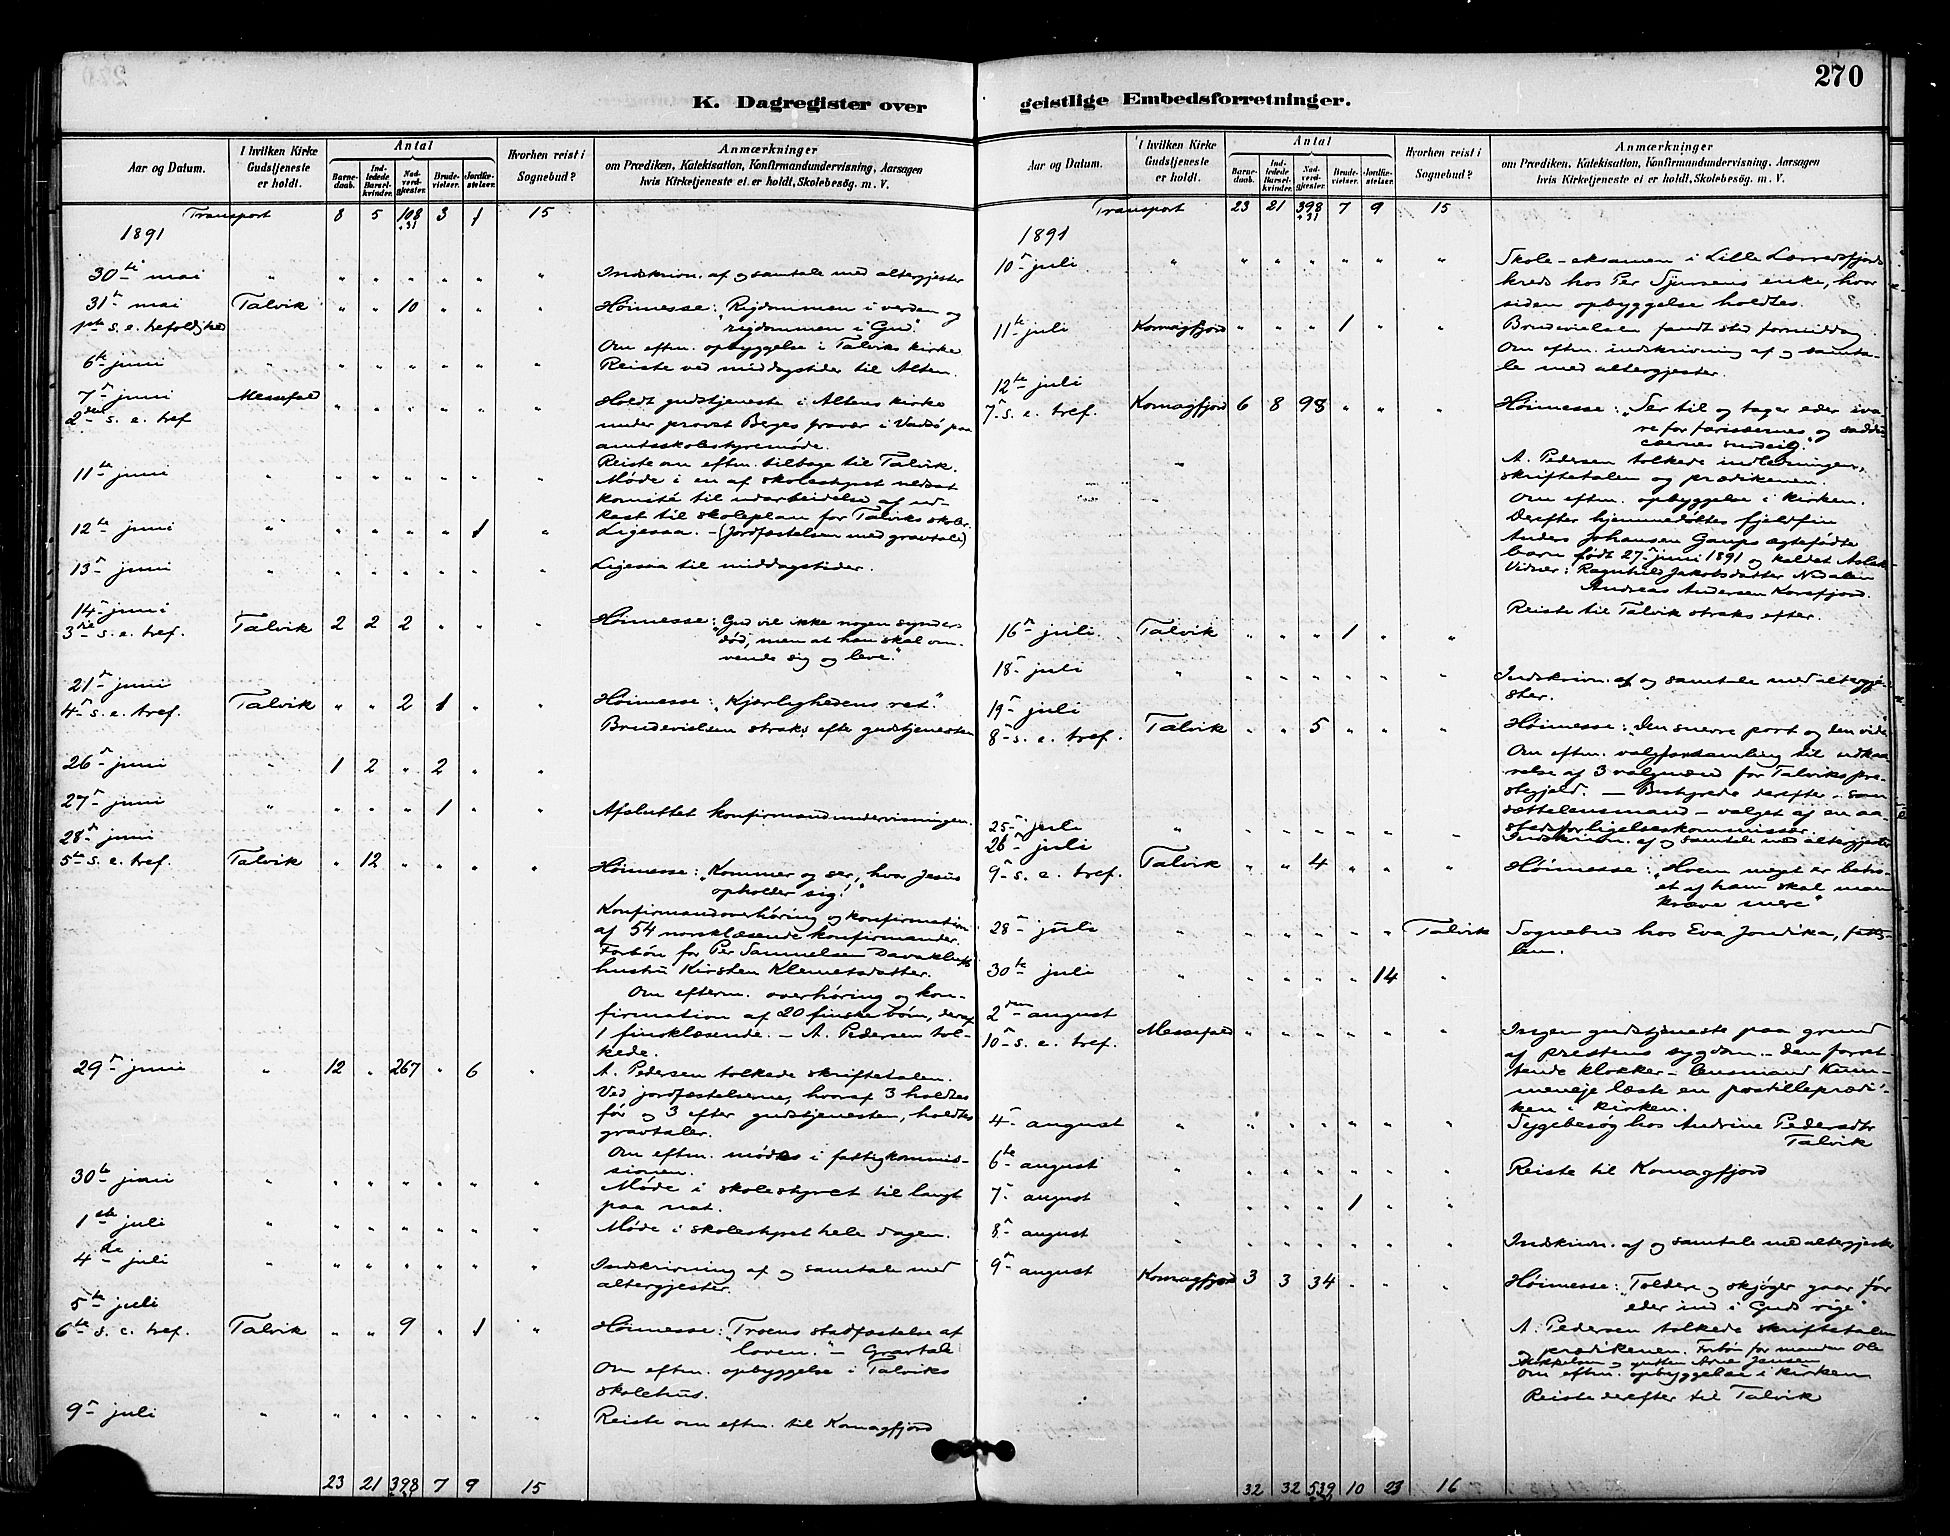 270
K. Dagregister over geistlige Embedsforretninger.
Aar og Datum.
I hvilken Kirke Gudstjeneste er holdt.
Antal
Barnedaab.
Indledede Barselkvinder.
Nadverdgjester.
Brudevielser.
Jordfæstelser.
Hvorhen reist i Sognebud?
Anmærkninger
om Prædiken, Katekisation, Konfirmandundervisning, Aarsagen
hvis Kirketjeneste ei er holdt, Skolebesøg. m. V.
Transport 8 5 108 3 1 15
+31
1891
30te mai " " " " " " " Indskrivn. af og samtale med altergjester
31te mai Talvik " " 10 " " " Høimesse: "Rigdommen i verden og
1ste s. e. trefoldighed rigdommen i Gud."
Om eftm. opbyggelse i Talviks kirke
6te juni " " " " " " " Reiste ved middagstider til Alten.
7de juni Messefald " " " " " " Holdt gudstjeneste i Altens kirke
2den s. e. tref under provst Berges fravær i Vadsø paa
amtsskolestyremøde.
Reiste om eftm. tilbage til Talvik.
11te juni " " " " " " " Møde i en af skolestyret nedsat
komité til udarbeidelse af ud-
kast til skoleplan for Talviks skoler.
12te juni " " " " " 1 " Ligesaa. - (Jordfæstelsen med gravtale)
13de juni " " " " " " " Ligesaa til middagstider.
14de juni
3die s. e. tref. Talvik 2 2 2 " " " Høimesse: "Gud vil ikke nogen synders
død, men at han skal om-
vende sig og leve."
21de juni
4de s. e. tref. Talvik " " 2 1 " " Høimesse: "Kjærlighedens ret."
Brudevielsen straks efte gudstjenesten
26de juni " 1 2 " 2 " "
27de juni " " " " 1 " " Afsluttet konfirmandundervisningen.
28de juni
5te s. e. tref. Talvik " 12 " " " " Høimesse: "Kommer og ser, hvor Jesus
opholder sig!"
Konfirmandoverhøring og konfirmation
af 54 norsklæsende konfirmander.
Forbøn for Per Samuelsen
hustru Kirsten Klemetsdatter.
Om efterm. overhøring og kon-
firmation af 20 finske børn, deraf
1 finsklæsende. - A. Pedersen tol-
kede.
29de juni " 12 " 267 " 6 " A. Pedersen tolkede skriftetalen.
Ved jordfæstelserne, hvoraf 3 holdtes
før og 3 efter gudstjenesten, holdtes
gravtaler.
Om eftm. møde i fattigkommis-
sionen.
30te juni " " " " " " " Møde i skolestyret til langt
paa nat.
1ste juli " " " " " " " Møde i skolestyret hele dagen.
4de juli " " " " " " " Indskrivning af og samtale med
altergjester.
5te juli
6te s. e. tref. Talvik " " 9 " 1 " Høimesse: "Troens stadfæstelse af
loven." - Gravtale
Om eftm. opbyggelse i Talviks
skolehus.
9de juli " " " " " " " Reiste om eftm. til Komagfjord
23 21 398 7 9 15
+31
Aar og Datum.
I hvilken Kirke Gudstjeneste er holdt.
Antal
Barnedaab.
Indledede Barselkvinder.
Nadverdgjester.
Brudevielser.
Jordfæstelser.
Hvorhen reist i Sognebud?
Anmærkninger
om Prædiken, Katekisation, Konfirmandundervisning, Aarsagen
hvis Kirketjeneste ei er holdt, Skolebesøg. m. V.
Transport 23 21 398 7 9 15
+31
1891
10de juli " " " " " " " Skole-eksamen i Lille Lerresfjords
kreds hos Per enke, hvor
siden opbyggelse holdtes.
11te juli Komagfjord " " " 1 " " Brudevielsen fandt sted formiddag
Om eftm. indskrivning af og samta-
le med altergjester.
12te juli
7de s. e. tref. Komagfjord 6 8 98 " " " Høimesse: "Ser til og tager eder iva-
re for farisæernes og saddu-
cæernes surdeig."
A. Pedersen tolkede indledningen,
skriftetalen og prædikenen.
Om eftm. opbyggelse i kirken.
Derefter hjemmedøbtes fjeldfin
Anders Johansen Gaups ægtefødte
barn født 27de juni 1891 og kaldet Aslak
Vidner: Ragnhild Jakobsdatter
Andreas Andersen Korsfjord.
Reiste til Talvik straks efter.
16de juli. Talvik " " " 1 " "
18de juli " " " " " " " Indskrivn. af og samtale med altergje-
ster.
19de juli
8de s. e. tref. Talvik " " 5 " " " Høimesse: "Den snevre port og den vide"
Om eftm. valgforsamling til udkaa-
relse af 3 valgmænd for Talviks præ-
stegjeld. - Bestyrede derefter - som
sættelensmand - valget af en aa-
stedsforligelseskommissær.
25de juli " " " " " " " Indskrivn. af og samtale med altergjester
26de juli
9de s. e. tref. Talvik " " 4 " " " Høimesse: "Hvem meget er betro-
et af ham skal man
kræve mere"
28de juli " " " " " " Talvik Sognebud hos Eva Jondika, fatt-
lem.
30te juli " " " " " 14 "
2den august
10de s. e. tref. Messefald " " " " " " Ingen gudstjeneste paa grund
af prestens sygdom. - Den forret-
tende klokker - lensmand
læste en postilleprædi-
ken i kirken.
4de august " " " " " " " Sygebesøg hos Andrine Pedersdtr
Talvik
6te august " " " " " " " Reiste til Komagfjord
7de august " " " " 1 " "
8de august " " " " " " " Indskrivn. af og samtale med altergjester
9de august Komagfjord 3 3 34 " " " Høimesse: "Toldere og skjøger gaar før
eder ind i Guds rige"
A. Pedersen tolkede skriftetalen
og prædikenen. Forbøn for manden Ole
Mikkelsen og gutten Arne Jensen
Om eftm. opbyggelse i kirken
Reiste derefter til Talvik
32 32 539 10 23 16
+31